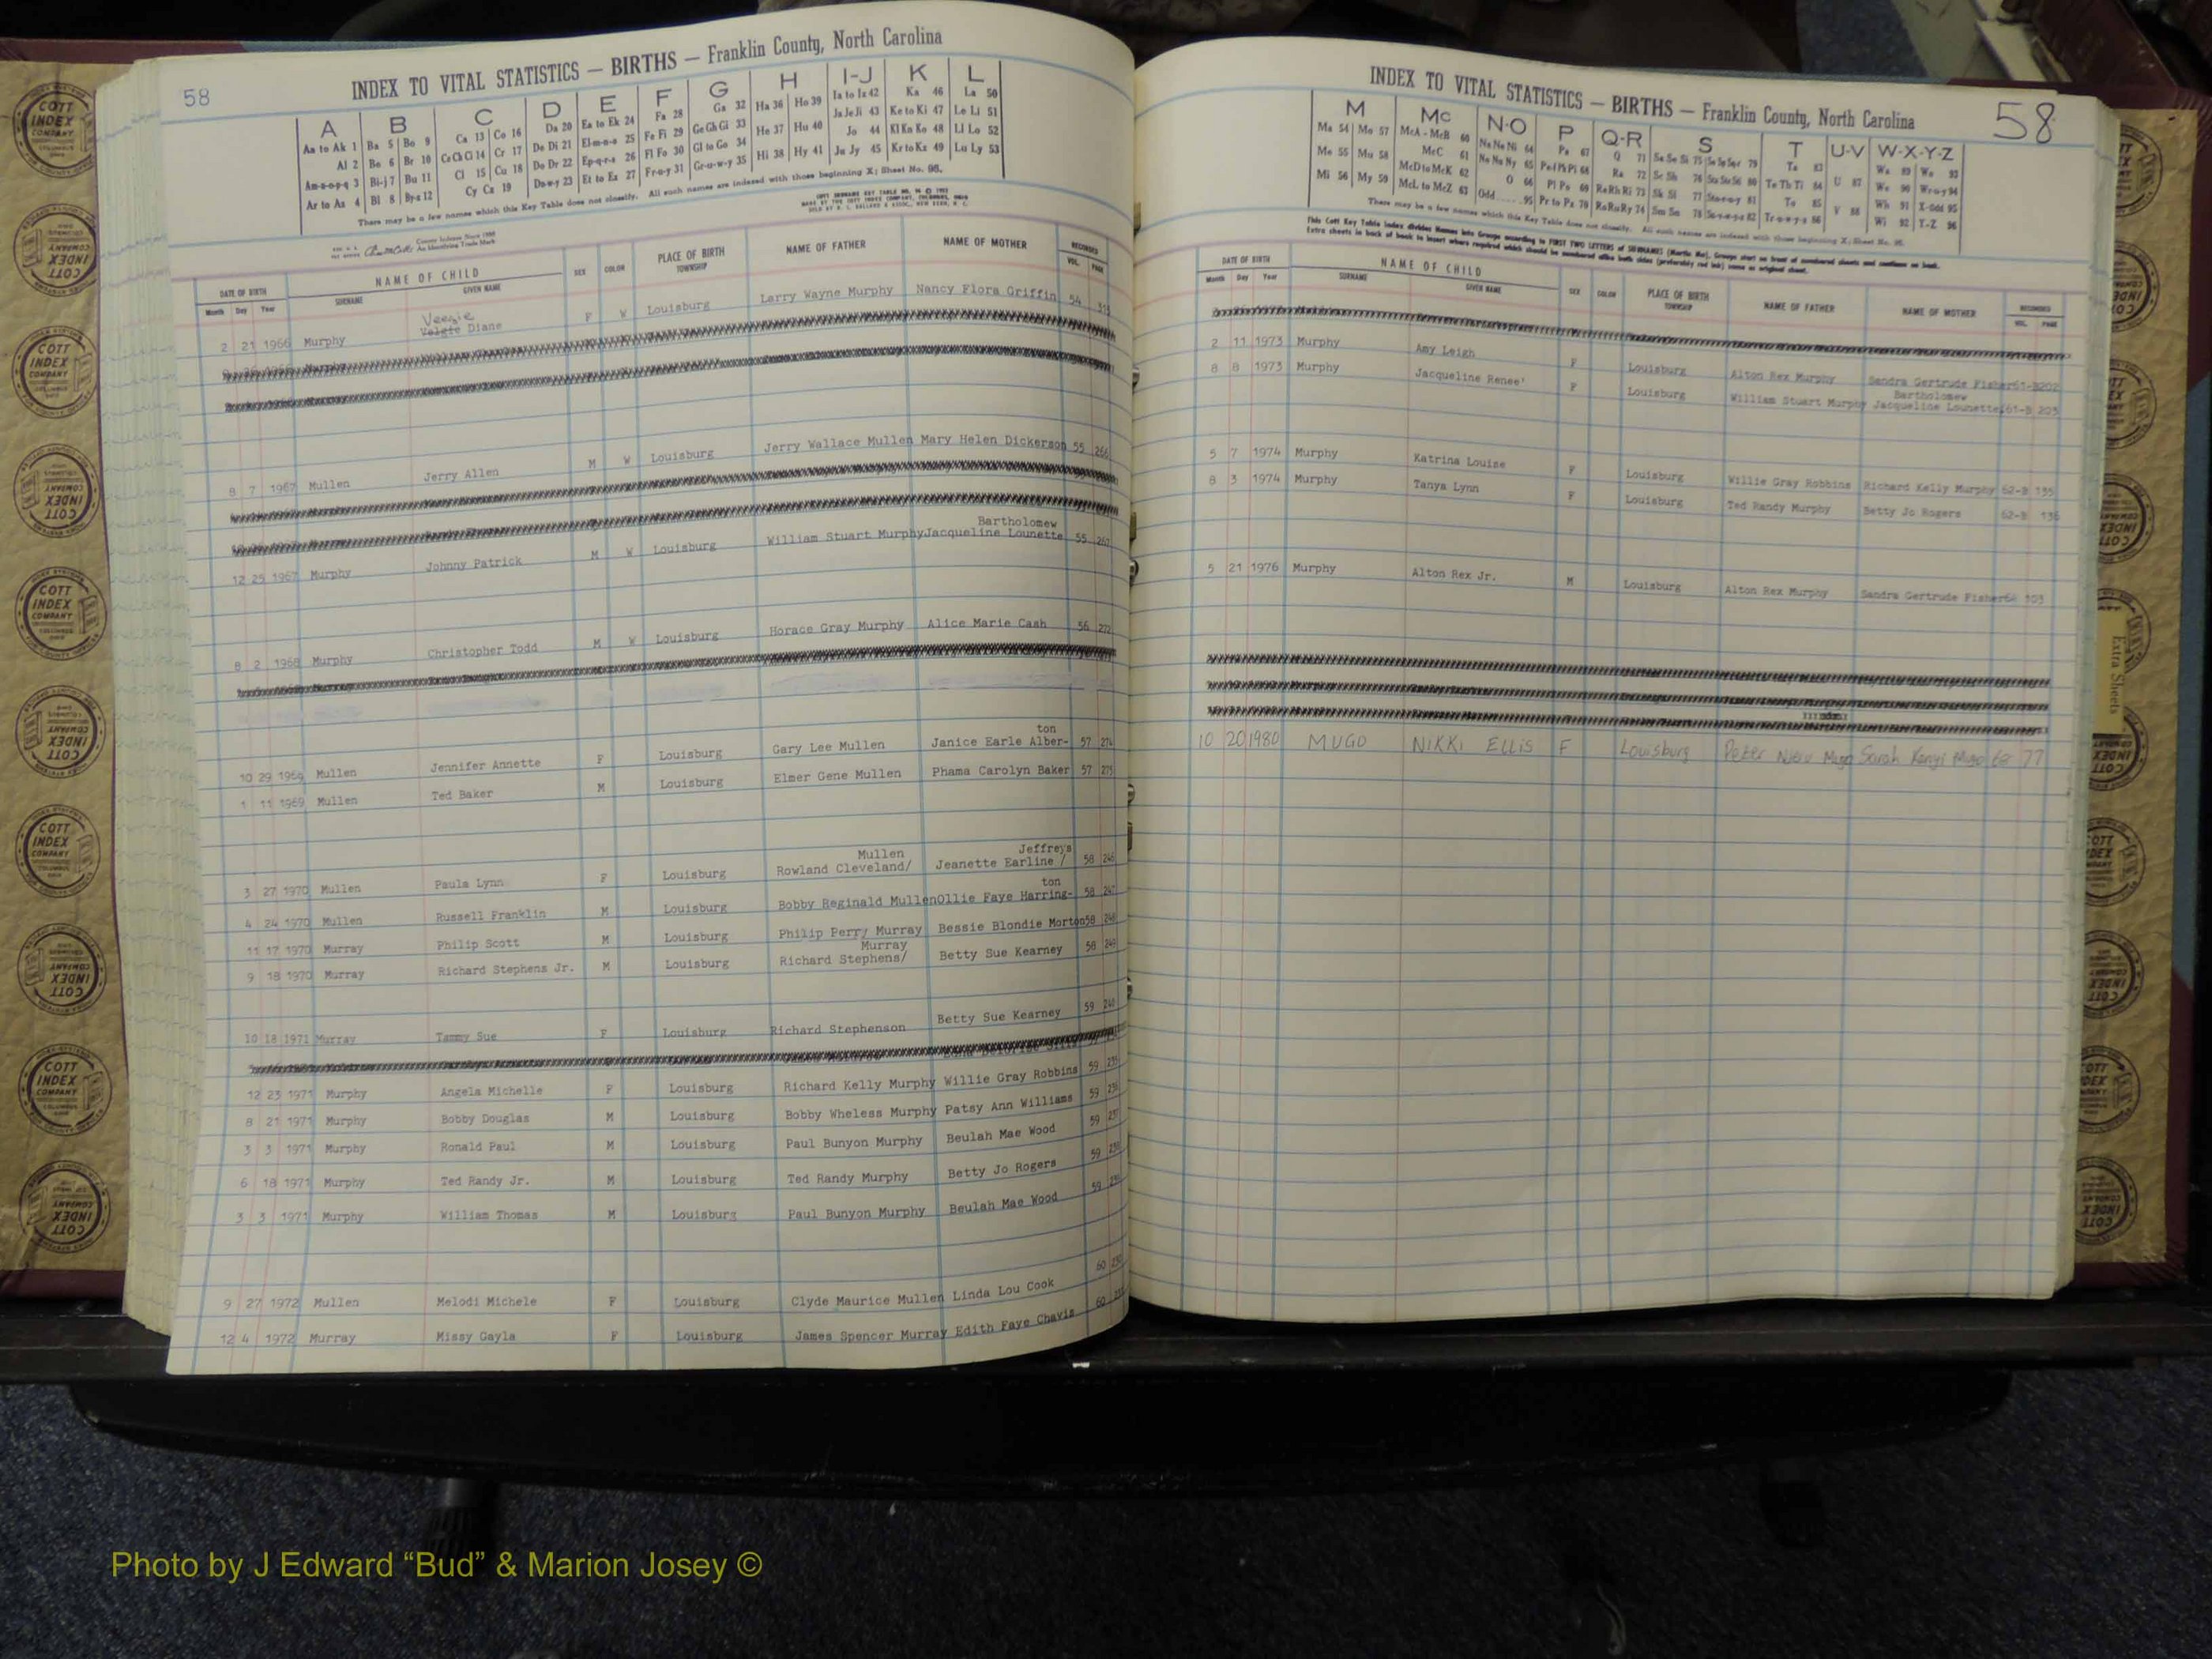 58
INDEX TO VITAL STATISTICS — BIRTHS — Franklin County, North Carolina
A B C D E F G H I-J K L
Aa to Ak 1 Ba 5 Bo 9 Ca 13 Co 16 Da 20 Ea to Ek 24 Fa 28 Ga 32 Ha 36 Ho 39 Ia to Iz 42 Ka 46 La 50
Al 2 Be 6 Br 10 Ce Ch Ci 14 Cr 17 De Di 21 El-m-n-o 25 Fe Fi 29 Ge Gh Gi 33 He 37 Hu 40 Ja Je Ji 43 Ke to Ki 47 Le Li 51
Am-n-o-p-q 3 Bi-j 7 Bu 11 Cl 15 Cu 18 Do Dr 22 Ep-q-r-s 26 Fl Fo 30 Gl to Go 34 Hi 38 Hy 41 Jo 44 Kl Kn Ko 48 Ll Lo 52
Ar to Az 4 Bl 8 By-z 12 Cy Cz 19 Du-w-y 23 Et to Ez 27 Fr-u-y 31 Gr-u-w-y 35 Ju Jy 45 Kr to Kz 49 Lu Ly 53
There may be a few names which this Key Table does not classify. All such names are indexed with those beginning X; Sheet No. 95.
DATE OF BIRTH NAME OF CHILD SEX COLOR PLACE OF BIRTH NAME OF FATHER NAME OF MOTHER RECORDED
Month Day Year SURNAME GIVEN NAME TOWNSHIP VOL. PAGE
Veegie
2 21 1966 Murphy Velgie Diane F W Louisburg Larry Wayne Murphy Nancy Flora Griffin 54
8 7 1967 Mullen Jerry Allen M W Louisburg Jerry Wallace Mullen Mary Helen Dickerson 55 266
Bartholomew
12 25 1967 Murphy Johnny Patrick M W Louisburg William Stuart Murphy Jacqueline Lounette 55 267
8 2 1968 Murphy Christopher Todd M W Louisburg Horace Gray Murphy Alice Marie Cash 56 272
ton
10 29 1969 Mullen Jennifer Annette F Louisburg Gary Lee Mullen Janice Earle Alber- 57 274
1 11 1969 Mullen Ted Baker M Louisburg Elmer Gene Mullen Phama Carolyn Baker 57 275
Mullen Jeffreys
3 27 1970 Mullen Paula Lynn F Louisburg Rowland Cleveland/ Jeanette Earline / 58 246
ton
4 24 1970 Mullen Russell Franklin M Louisburg Bobby Reginald Mullen Ollie Faye Harring- 58 247
11 17 1970 Murray Philip Scott M Louisburg Philip Perry Murray Bessie Blondie Morton 58 248
Murray
9 18 1970 Murray Richard Stephens Jr. M Louisburg Richard Stephens/ Betty Sue Kearney 58 249
10 18 1971 Murray Tammy Sue F Louisburg Richard Stephenson Betty Sue Kearney 59 240
12 23 1971 Murphy Angela Michelle F Louisburg Richard Kelly Murphy Willie Gray Robbins 59 235
8 21 1971 Murphy Bobby Douglas M Louisburg Bobby Wheless Murphy Patsy Ann Williams 59 236
3 3 1971 Murphy Ronald Paul M Louisburg Paul Bunyon Murphy Beulah Mae Wood 59 237
6 18 1971 Murphy Ted Randy Jr. M Louisburg Ted Randy Murphy Betty Jo Rogers 59 238
3 3 1971 Murphy William Thomas M Louisburg Paul Bunyon Murphy Beulah Mae Wood 59 239
9 27 1972 Mullen Melodi Michele F Louisburg Clyde Maurice Mullen Linda Lou Cook 60
12 4 1972 Murray Missy Gayla F Louisburg James Spencer Murray Edith Faye Chavis 60
INDEX TO VITAL STATISTICS — BIRTHS — Franklin County, North Carolina 58
M Mc N-O P Q-R S T U-V W-X-Y-Z
Ma 54 Mo 57 McA - McB 60 Na Ne Ni 64 Pa 67 Q 71 Ta 83 Wa 89 Wo 93
Me 55 Mu 58 McC 61 No Nu Ny 65 Pe Pf Ph Pi 68 Ra 72 Sc Sh 76 Te Th Ti 84 U 87 We 90 Wr-u-y 94
Mi 56 My 59 McD to McK 62 O 66 Pl Po 69 Re Rh Ri 73 Sk Sl 77 To 85 Wh 91 X-Odd 95
McL to McZ 63 Odd 95 Pr to Pz 70 Ro Ru Ry 74 Sm Sn 78 Tr-u-w-y-z 86 V 88 Wi 92 Y-Z 96
There may be a few names which this Key Table does not classify. All such names are indexed with those beginning X; Sheet No. 95.
This Cott Key Table Index divides Names into Groups according to FIRST TWO LETTERS of SURNAMES
DATE OF BIRTH NAME OF CHILD SEX COLOR PLACE OF BIRTH NAME OF FATHER NAME OF MOTHER RECORDED
Month Day Year SURNAME GIVEN NAME TOWNSHIP VOL. PAGE
2 11 1973 Murphy Amy Leigh F Louisburg Alton Rex Murphy Sandra Gertrude Fisher 61-B 202
Bartholomew
8 8 1973 Murphy Jacqueline Renee' F Louisburg William Stuart Murphy Jacqueline Lounette 61-B 203
5 7 1974 Murphy Katrina Louise F Louisburg Willie Gray Robbins Richard Kelly Murphy 62-B 135
8 3 1974 Murphy Tanya Lynn F Louisburg Ted Randy Murphy Betty Jo Rogers 62-B 136
5 21 1976 Murphy Alton Rex Jr. M Louisburg Alton Rex Murphy Sandra Gertrude Fisher 64 103
10 20 1980 MUGO NIKKI ELLIS F Louisburg Peter Mugo Sarah Mugo 68 77
Extra Sheets
COTT INDEX COMPANY
Photo by J Edward “Bud” & Marion Josey ©